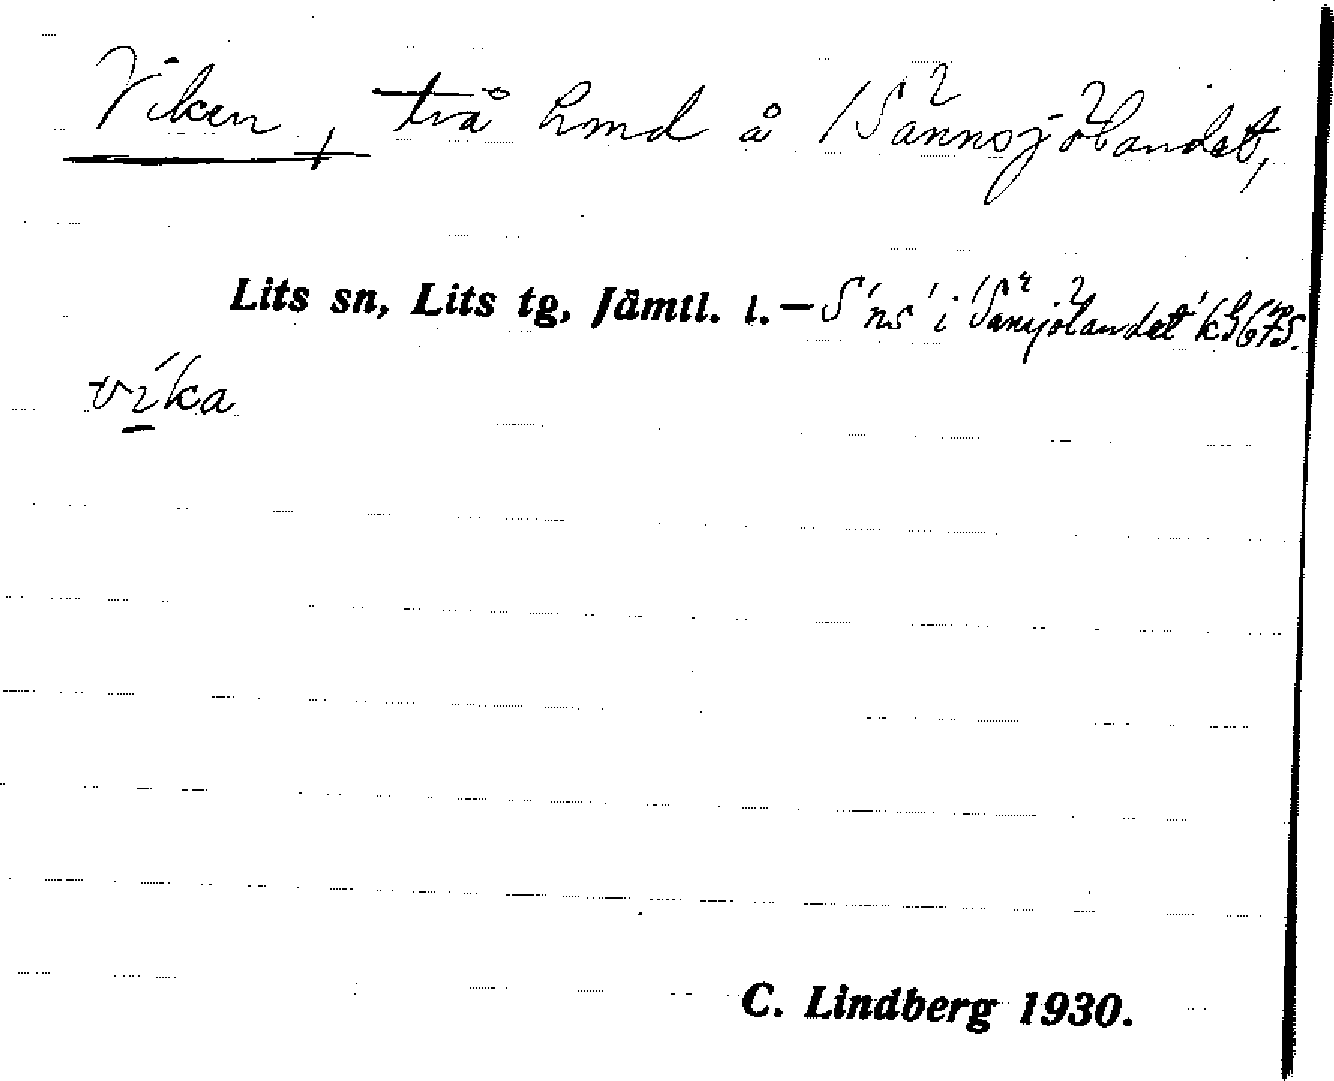 Viken, två hmd å Sannsjölandet,
Lits sn, Lits tg, Jämtl. l. – S'ns' i Sannsjölandet
víka
C. Lindberg 1930.